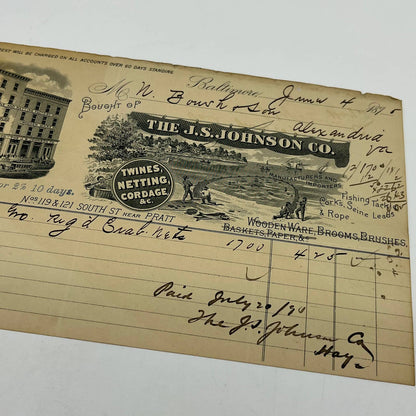 REST WILL BE CHARGED ON ALL ACCOUNTS OVER 60 DAYS STANDING.
Baltimore, June 4
M N.
Bought of
& Son
Alexandria
Va
THE J.S. JOHNSON CO.
MANUFACTURERS AND
IMPORTERS
TWINES,
NETTING
CORDAGE
&c.
Fishing Tackle
Corks, Seine Leads
& Rope.
or 2% 10 days.
Nos 119 & 121 SOUTH ST NEAR PRATT
WOODEN WARE, BROOMS, BRUSHES,
BASKETS, PAPER, &c
Crab Nets 1700 4 25
Paid July 20/90
The J.S. Johnson Co